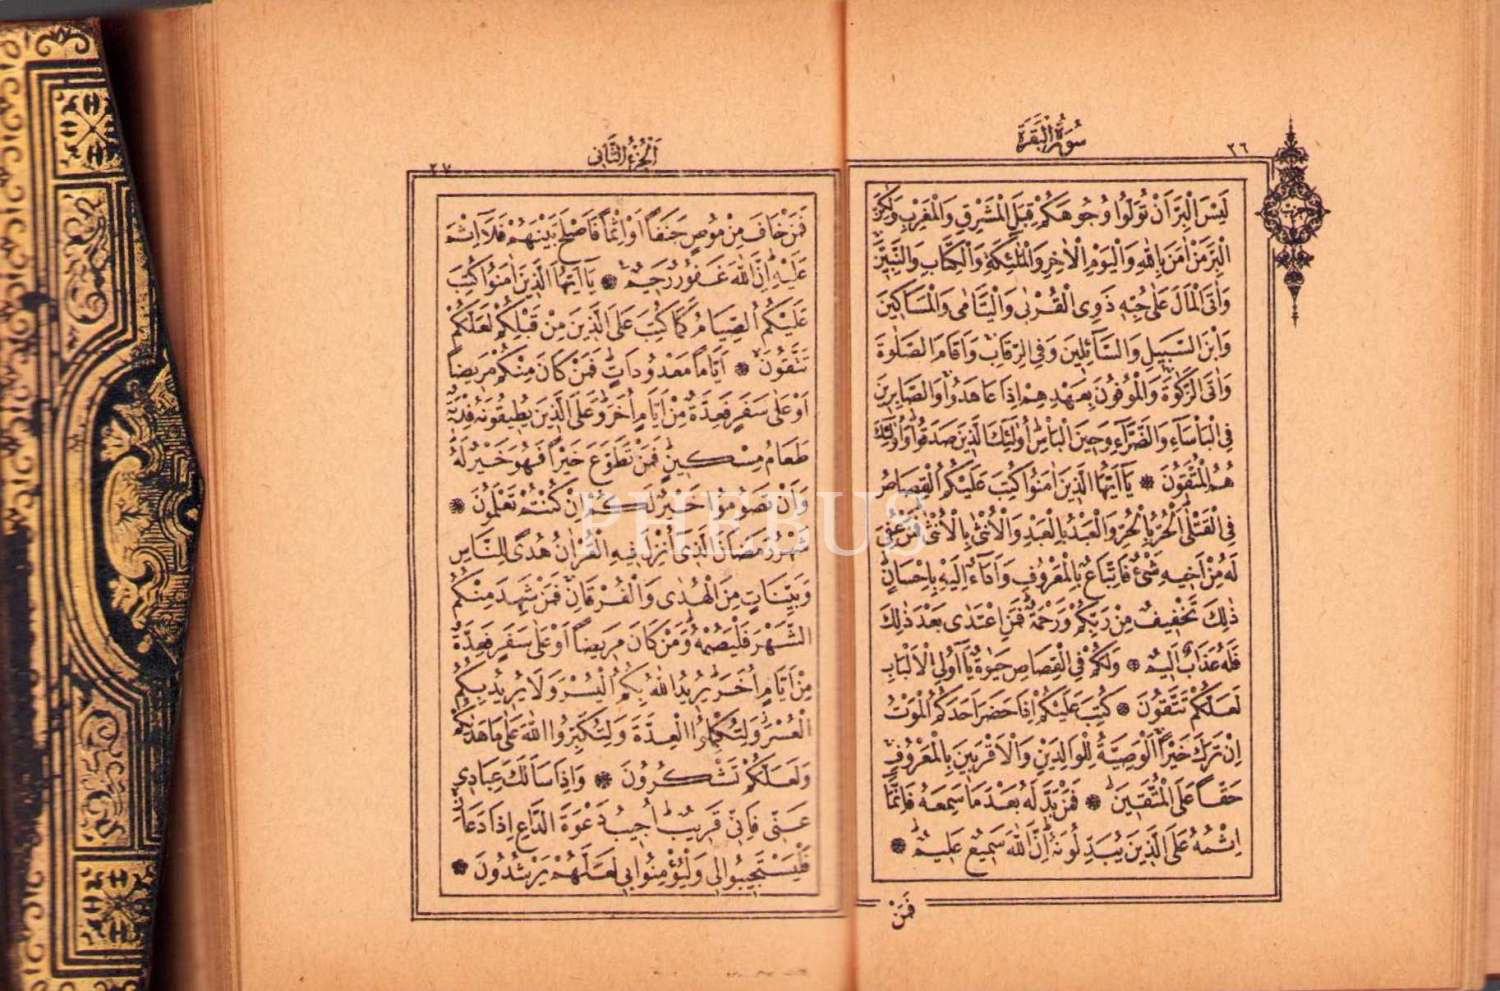 ٢٦
سُورَةُ الْبَقَرَةِ
لَيْسَ الْبِرَّ اَنْ تُوَلُّوا وُجُوهَكُمْ قِبَلَ الْمَشْرِقِ وَالْمَغْرِبِ وَلٰكِنَّ
الْبِرَّ مَنْ اٰمَنَ بِاللّٰهِ وَالْيَوْمِ الْاٰخِرِ وَالْمَلٰٓئِكَةِ وَالْكِتَابِ وَالنَّبِيّ۪نَۚ
وَاٰتَى الْمَالَ عَلٰى حُبِّه۪ ذَوِي الْقُرْبٰى وَالْيَتَامٰى وَالْمَسَاك۪ينَ
وَابْنَ السَّب۪يلِ وَالسَّٓائِل۪ينَ وَفِي الرِّقَابِۚ وَاَقَامَ الصَّلٰوةَ
وَاٰتَى الزَّكٰوةَۚ وَالْمُوفُونَ بِعَهْدِهِمْ اِذَا عَاهَدُواۚ وَالصَّابِر۪ينَ
فِي الْبَأْسَٓاءِ وَالضَّرَّٓاءِ وَح۪ينَ الْبَأْسِۜ اُولٰٓئِكَ الَّذ۪ينَ صَدَقُواۜ وَاُولٰٓئِكَ
هُمُ الْمُتَّقُونَ ❁ يَٓا اَيُّهَا الَّذ۪ينَ اٰمَنُوا كُتِبَ عَلَيْكُمُ الْقِصَاصُ
فِي الْقَتْلٰىۜ اَلْحُرُّ بِالْحُرِّ وَالْعَبْدُ بِالْعَبْدِ وَالْاُنْثٰى بِالْاُنْثٰىۜ فَمَنْ عُفِيَ
لَهُ مِنْ اَخ۪يهِ شَيْءٌ فَاتِّبَاعٌ بِالْمَعْرُوفِ وَاَدَٓاءٌ اِلَيْهِ بِاِحْسَانٍۜ
ذٰلِكَ تَخْف۪يفٌ مِنْ رَبِّكُمْ وَرَحْمَةٌۜ فَمَنِ اعْتَدٰى بَعْدَ ذٰلِكَ
فَلَهُ عَذَابٌ اَل۪يمٌ ❁ وَلَكُمْ فِي الْقِصَاصِ حَيٰوةٌ يَٓا اُو۬لِي الْاَلْبَابِ
لَعَلَّكُمْ تَتَّقُونَ ❁ كُتِبَ عَلَيْكُمْ اِذَا حَضَرَ اَحَدَكُمُ الْمَوْتُ
اِنْ تَرَكَ خَيْرًاۚ اَلْوَصِيَّةُ لِلْوَالِدَيْنِ وَالْاَقْرَب۪ينَ بِالْمَعْرُوفِۚ
حَقًّا عَلَى الْمُتَّق۪ينَ ❁ فَمَنْ بَدَّلَهُ بَعْدَ مَا سَمِعَهُ فَاِنَّمَٓا
اِثْمُهُ عَلَى الَّذ۪ينَ يُبَدِّلُونَهُۜ اِنَّ اللّٰهَ سَم۪يعٌ عَل۪يمٌ ❁
فَمَنْ
اَلْجُزْءُ الثَّانِي
٢٧
فَمَنْ خَافَ مِنْ مُوصٍ جَنَفًا اَوْ اِثْمًا فَاَصْلَحَ بَيْنَهُمْ فَلَٓا اِثْمَ
عَلَيْهِۜ اِنَّ اللّٰهَ غَفُورٌ رَح۪يمٌ ❁ يَٓا اَيُّهَا الَّذ۪ينَ اٰمَنُوا كُتِبَ
عَلَيْكُمُ الصِّيَامُ كَمَا كُتِبَ عَلَى الَّذ۪ينَ مِنْ قَبْلِكُمْ لَعَلَّكُمْ
تَتَّقُونَۙ ❁ اَيَّامًا مَعْدُودَاتٍۜ فَمَنْ كَانَ مِنْكُمْ مَر۪يضًا
اَوْ عَلٰى سَفَرٍ فَعِدَّةٌ مِنْ اَيَّامٍ اُخَرَۜ وَعَلَى الَّذ۪ينَ يُط۪يقُونَهُ فِدْيَةٌ
طَعَامُ مِسْك۪ينٍۜ فَمَنْ تَطَوَّعَ خَيْرًا فَهُوَ خَيْرٌ لَهُۜ
وَاَنْ تَصُومُوا خَيْرٌ لَكُمْ اِنْ كُنْتُمْ تَعْلَمُونَ ❁
شَهْرُ رَمَضَانَ الَّذ۪ٓي اُنْزِلَ ف۪يهِ الْقُرْاٰنُ هُدًى لِلنَّاسِ
وَبَيِّنَاتٍ مِنَ الْهُدٰى وَالْفُرْقَانِۚ فَمَنْ شَهِدَ مِنْكُمُ
الشَّهْرَ فَلْيَصُمْهُۜ وَمَنْ كَانَ مَر۪يضًا اَوْ عَلٰى سَفَرٍ فَعِدَّةٌ
مِنْ اَيَّامٍ اُخَرَۜ يُر۪يدُ اللّٰهُ بِكُمُ الْيُسْرَ وَلَا يُر۪يدُ بِكُمُ
الْعُسْرَۘ وَلِتُكْمِلُوا الْعِدَّةَ وَلِتُكَبِّرُوا اللّٰهَ عَلٰى مَا هَدٰيكُمْ
وَلَعَلَّكُمْ تَشْكُرُونَ ❁ وَاِذَا سَاَلَكَ عِبَاد۪ي
عَنّ۪ي فَاِنّ۪ي قَر۪يبٌۜ اُج۪يبُ دَعْوَةَ الدَّاعِ اِذَا دَعَانِ
فَلْيَسْتَج۪يبُوا ل۪ي وَلْيُؤْمِنُوا ب۪ي لَعَلَّهُمْ يَرْشُدُونَ ❁
PHEBUS